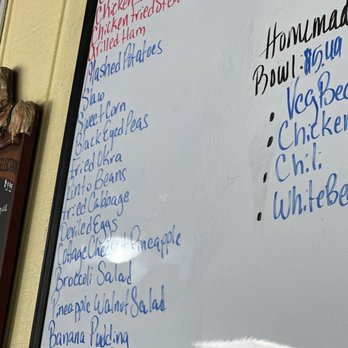 Chicken
Chicken Fried Ste
Grilled Ham
Mashed Potatoes
Slaw
Sweet Corn
Black Eyed Peas
Fried Okra
Pinto Beans
Fried Cabbage
Deviled Eggs
Cottage Cheese & Pineapple
Broccoli Salad
Pineapple Walnut Salad
Banana Pudding
Homemad
Bowl: $5.49
• Veg Bee
• Chicken
• Chili
• White Be